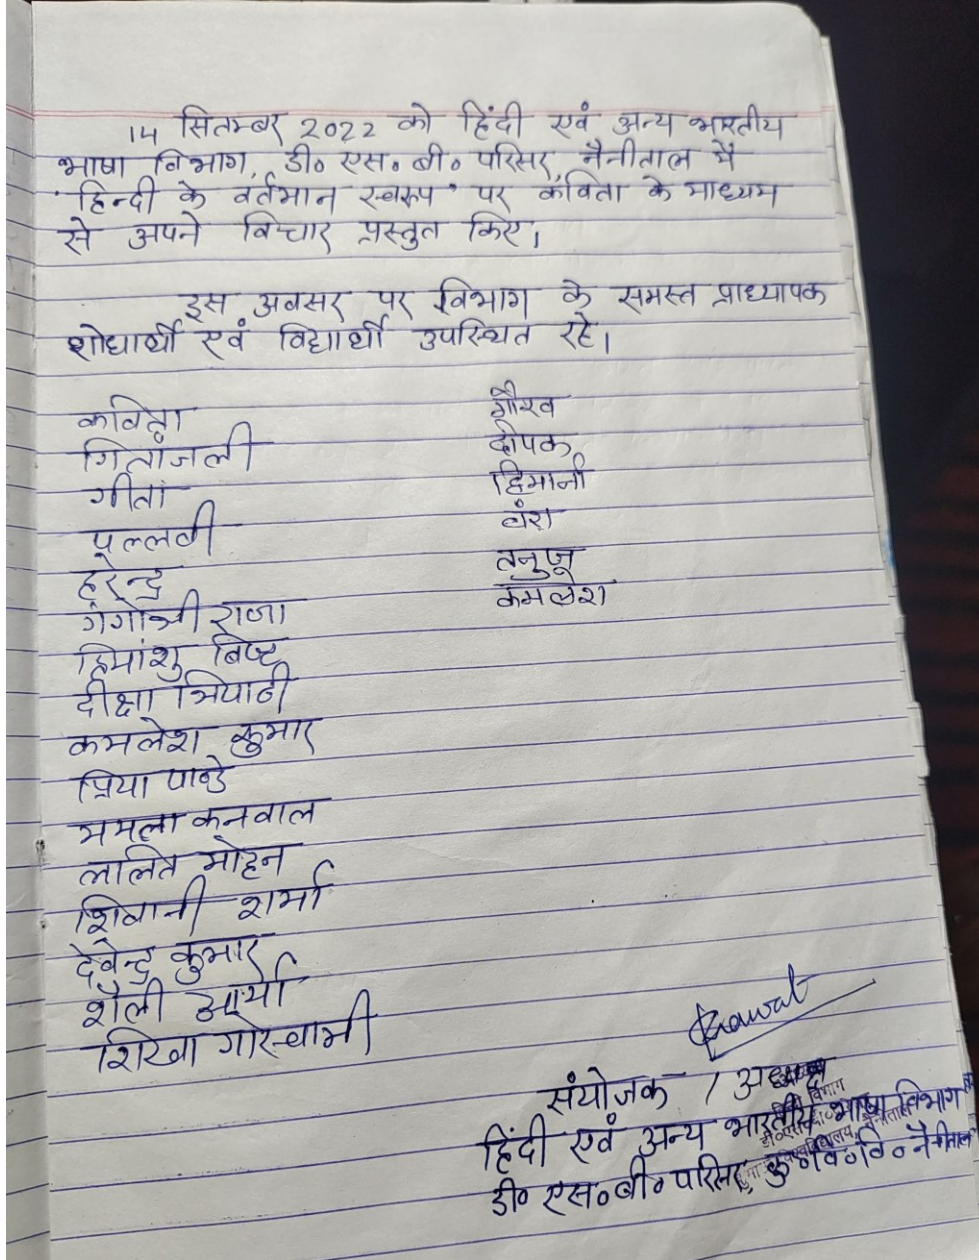 14 सितम्बर 2022 को हिंदी एवं अन्य भारतीय
भाषा विभाग, डी० एस० बी० परिसर, नैनीताल मै
"हिन्दी के वर्तमान स्वरूप" पर कविता के माध्यम
से अपने विचार प्रस्तुत किए।
इस अवसर पर विभाग के समस्त प्राध्यापक
शोधार्थी एवं विद्यार्थी उपस्थित रहे।
कविता
गितांजली
गीता
पल्लवी
हरेन्द्र
गंगोत्री राजा
हिमांशु बिष्ट
दीक्षा त्रिपाठी
कमलेश कुमार
प्रिया पाण्डे
ममता कनवाल
ललित मोहन
शिवानी शर्मा
देवेन्द्र कुमार
शैली आर्या
शिखा गोस्वामी
गौरव
दीपक
हिमानी
वंश
तनुजू
कमलेश
Rawat
संयोजक / अध्यक्ष
हिंदी एवं अन्य भारतीय भाषा विभाग
डी० एस० बी० परिसर, कु० वि० वि० नैनीताल